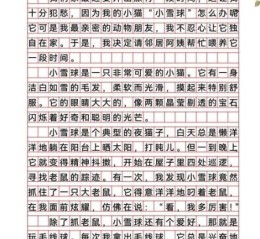 十分犯愁，因为我的小猫“小雪球”怎么办呢？
它可是我最亲密的动物朋友，我不忍心让它独
自在家。于是，我决定请邻居阿姨帮忙喂养它
一段时间。
小雪球是一只非常可爱的小猫。它有一身
洁白如雪的毛发，柔软而光滑，摸起来特别舒
服。它的眼睛大大的，像两颗晶莹剔透的宝石，
闪烁着好奇和聪明的光芒。
小雪球是个典型的夜猫子，白天总是懒洋
洋地躺在阳台上晒太阳，打盹儿。但一到晚上，
它就变得精神抖擞，开始在屋子里四处巡逻，
寻找老鼠的踪迹。有一次，我发现小雪球竟然
抓住了一只大老鼠，它得意洋洋地叼着老鼠，
在我面前炫耀，仿佛在说：“看，我多厉害！”
除了抓老鼠，小雪球还有个爱好，那就是
玩毛线球。每次我拿出毛线球，它总是兴奋地